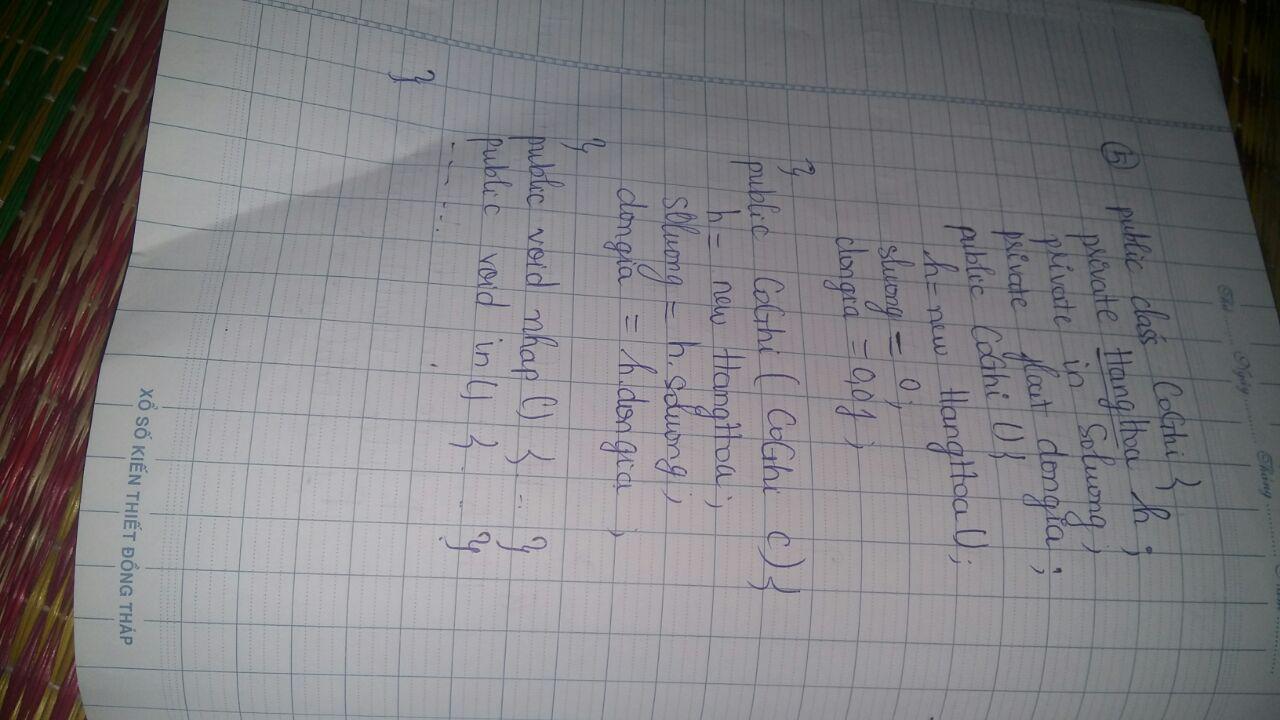 Thứ Ngày Tháng
5 public class CoGhi {
private HangHoa h;
private in Soluong;
private float dongia;
public CoGhi () {
h = new HangHoa ();
sluong = 0;
dongia = 0,0f;
}
public CoGhi ( CoGhi c) {
h = new HangHoa;
soluong = h.soluong;
dongia = h.dongia ;
}
public void nhap () { .. }
public void in () { .. }
.........
}
XỔ SỐ KIẾN THIẾT ĐỒNG THÁP